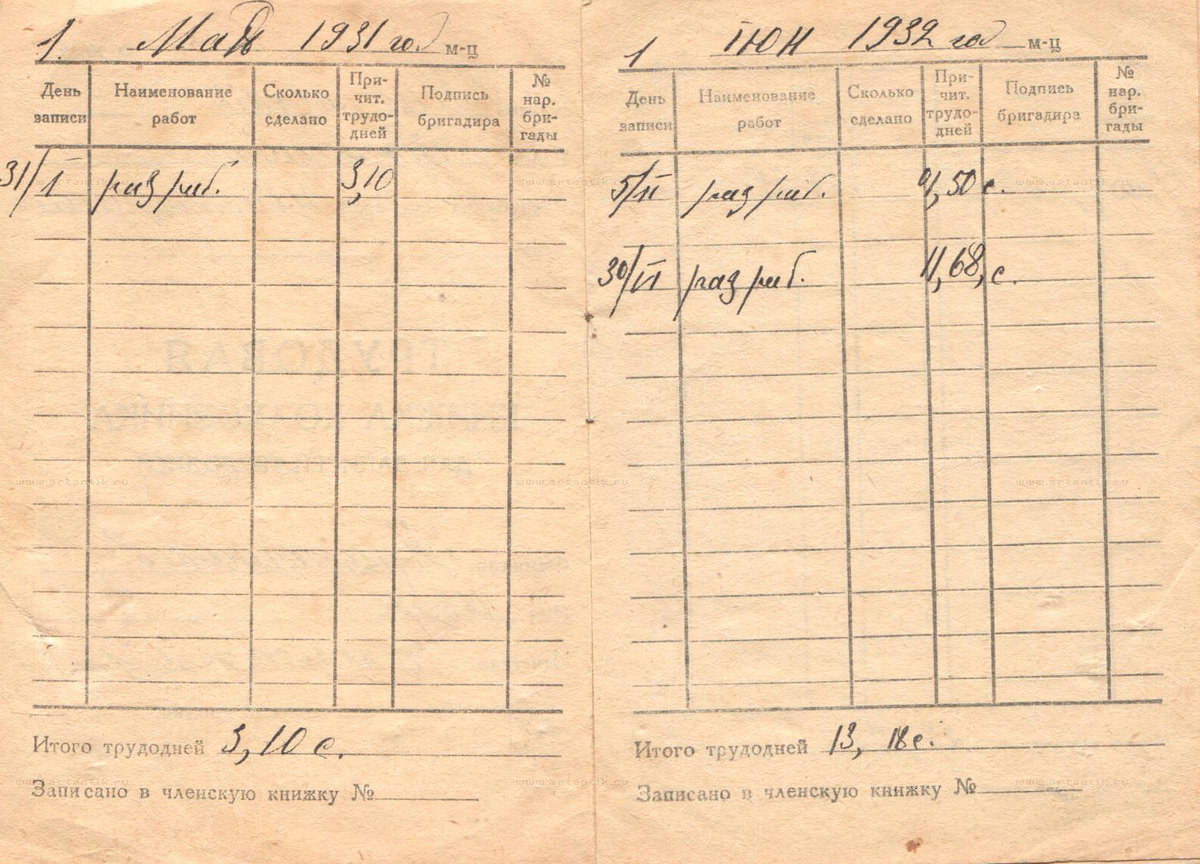 1. Май 1931 год м-ц
День записи Наименование работ Сколько сделано При-чит. трудо-дней Подпись бригадира № нар. бри-гады
31/I раз раб. 3,10
Итого трудодней 3,10 с.
Записано в членскую книжку №
1 Июн 1932 год м-ц
День записи Наименование работ Сколько сделано При-чит. трудо-дней Подпись бригадира № нар. бри-гады
5/II раз раб. 1,50 с.
30/VI раз раб. 11,68, с.
Итого трудодней 13, 18 с.
Записано в членскую книжку №
ТРУДОВАЯ